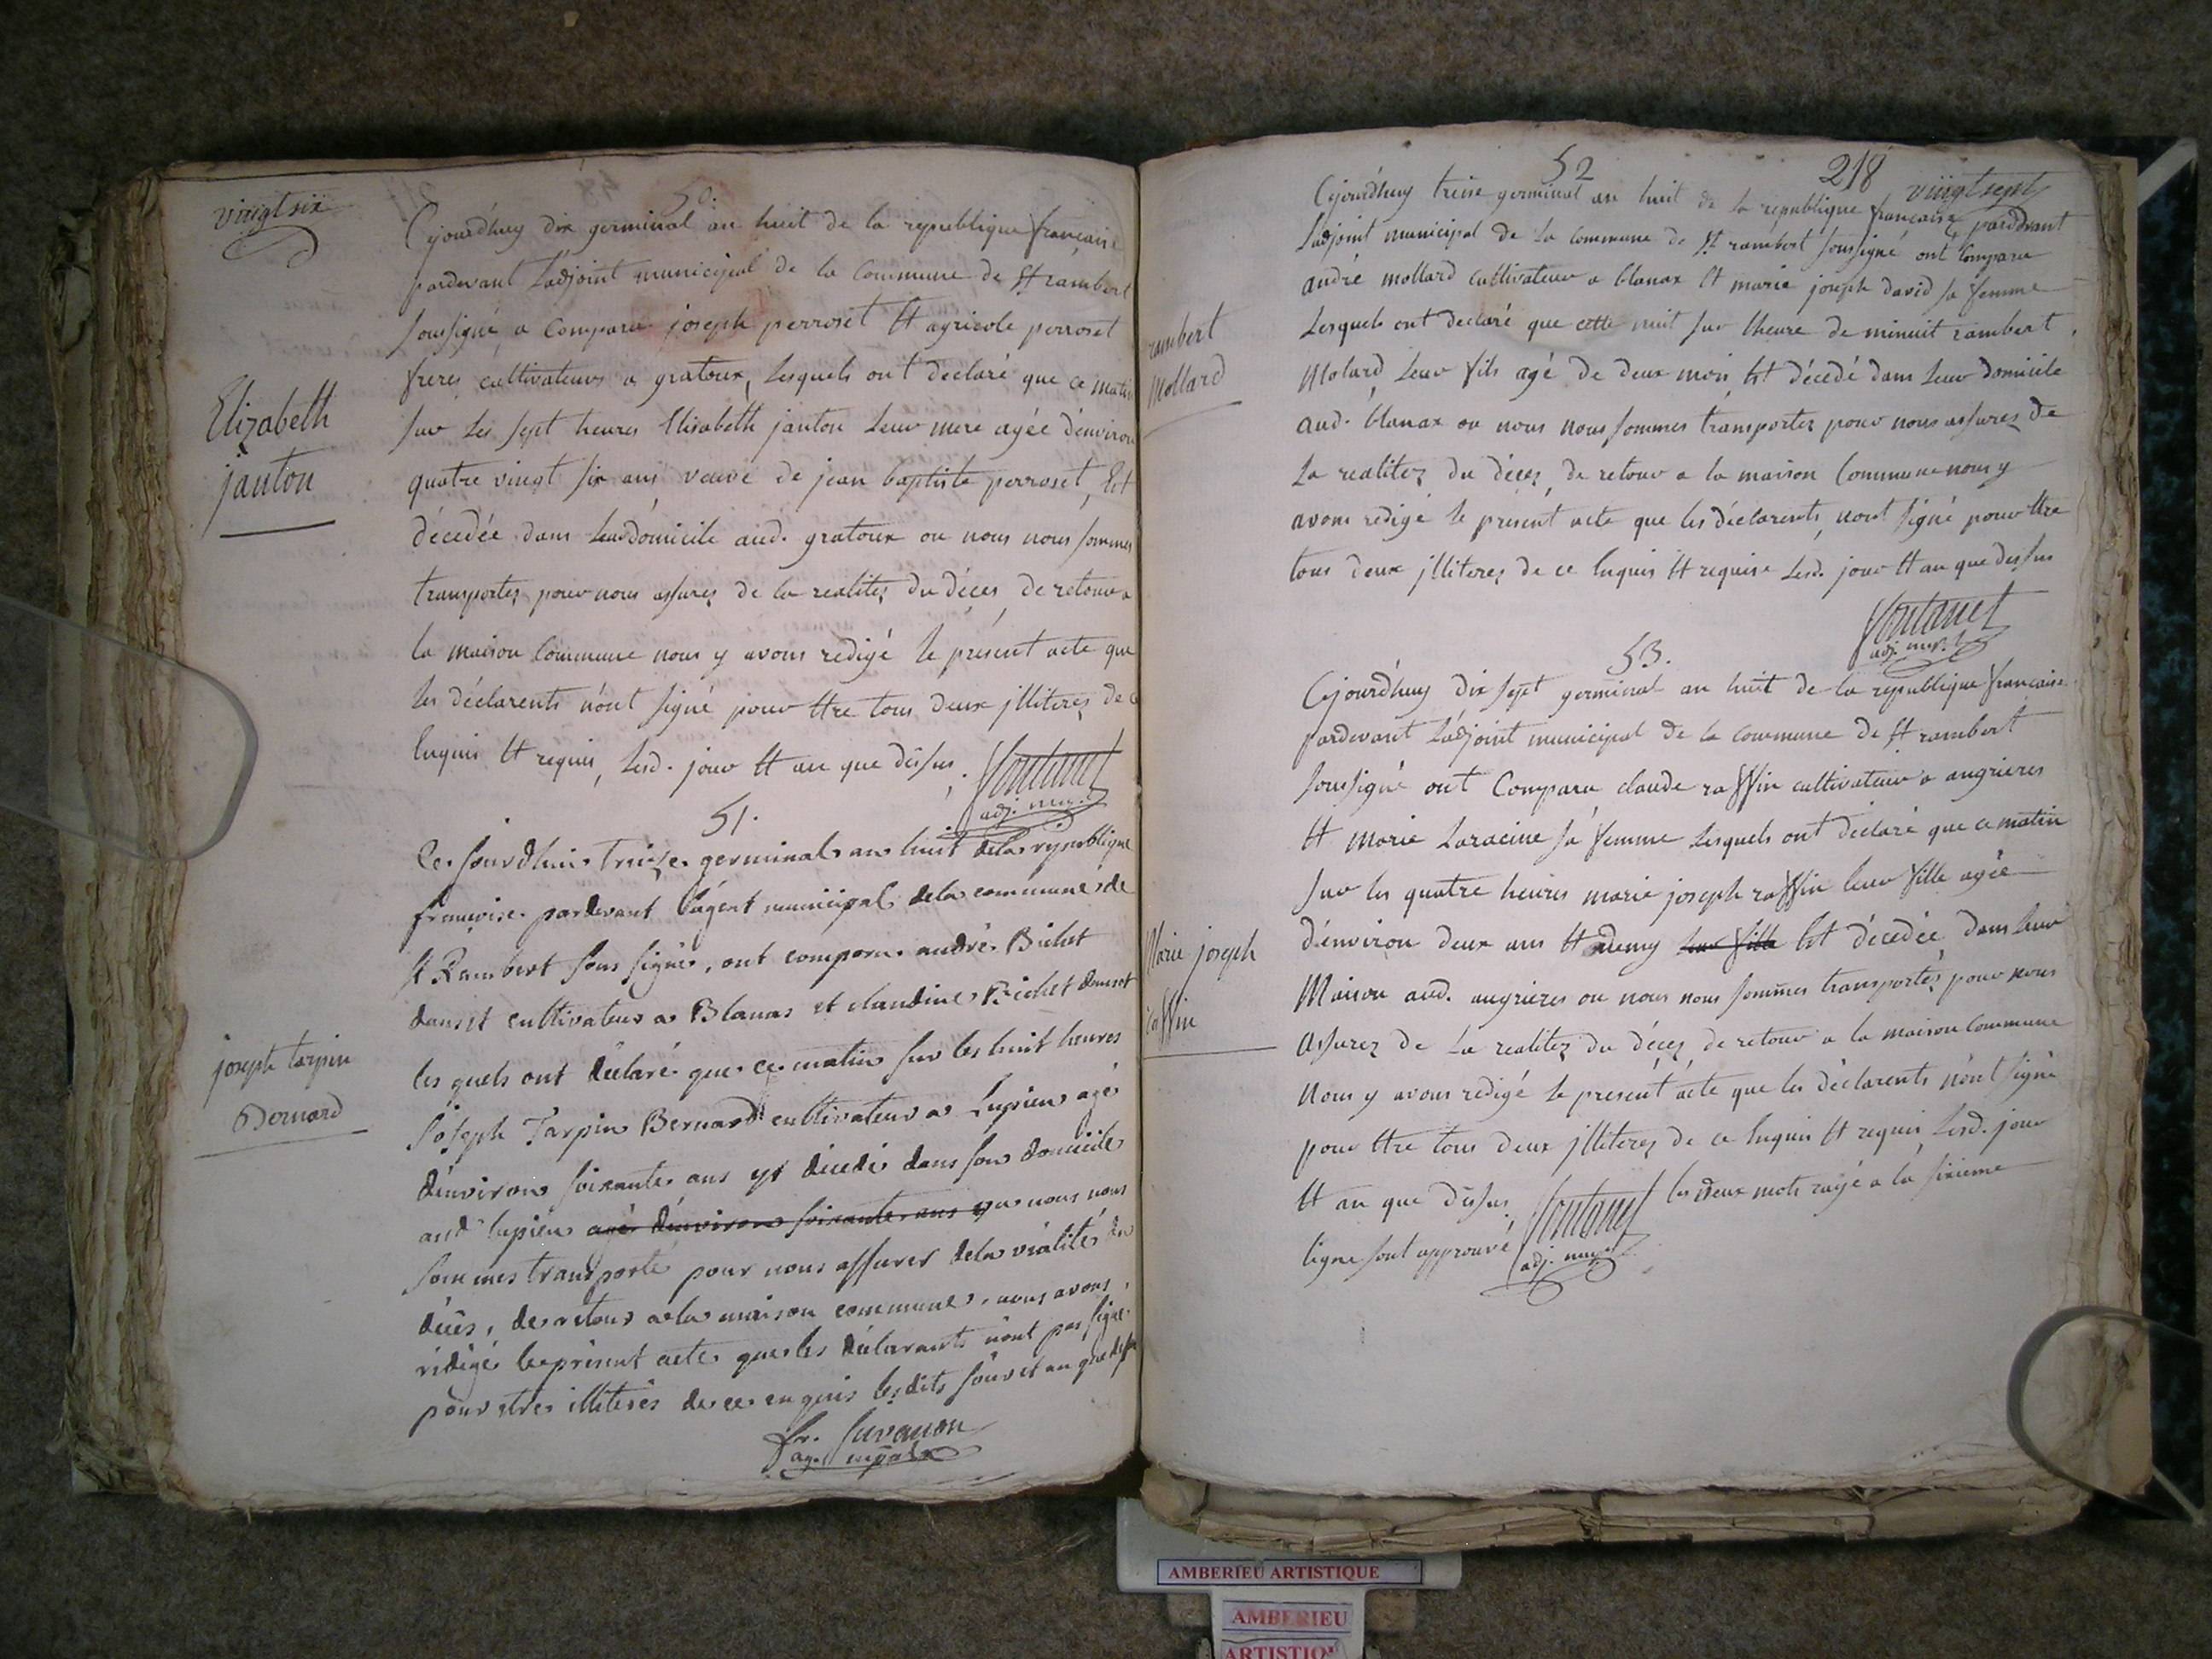 vingt six
50.
Cejourdhuy dix germinal an huit de la republique francaise
pardevant Ladjoint municipal de la Commune de St rambert
soussigné a Comparu joseph perroset Et agricole perroset
freres cultivateurs a gratoux, Lesquels ont declaré que ce matin
sur Les sept heures Elisabeth janton Leur mere agée d'environ
quatre vingt six ans veuve de jean baptiste perroset, Est
décedée dans Leur domicile aud. gratoux ou nous nous sommes
transportez pour nous assurez de la realitez du déces, de retour a
la maison Commune nous y avons redigé le présent acte que
les déclarents n'ont signé pour Etre tous deux jlliterez de ce
Enquis Et requis, Lesd. jour Et an que dessus.
Elizabeth
janton
Fontanet
adj. mup.
51.
Ce jourdhui treize germinal an huit de la république
françoise pardevant l'agent municipal de la commune de
St Rambert sous signé, ont comparu andré Bichet
danset cultivateur a Blanas et claudine Bichet danset
les quels ont déclaré que ce matin sur les huit heures
Joseph Tarpin Bernard cultivateur a Lupieu agé
d'environ soixante ans est décédé dans son domicile
aud lupieu agé d'environ soixante ans ou nous nous
sommes transporté pour nous assurer de la réalité du
décès, de retour a la maison commune, nous avons
rédigé le présent acte que les déclarants n'ont pas signé
pour etre illiterés de ce enquis les dits jour et an que dessus
joseph tarpin
Bernard
fr. Juvanon
ag. mpal
52
218
vingt sept
Cejourdhuy treise germinal an huit de la république francaise, pardevant
Ladjoint municipal de La Commune de St rambert soussigné ont Comparu
andré mollard cultivateur a blanax Et marie joseph david sa femme
Lesquels ont declaré que cette nuit sur Lheure de minuit rambert
Molard Leur fils agé de deux mois Est décédé dans Leur Domicile
aud. blanax ou nous nous sommes transportez pour nous assurez de
La realitez du décez, de retour a la maison Commune nous y
avons redigé le présent acte que les déclarents, n'ont signé pour Etre
tous deux jlliterez de ce Enquis Et requise Lesd. jour Et an que dessus
rambert
Mollard
Fontanet
adj. mup.
53.
Cejourdhuy dix sept germinal an huit de la republique francaise
pardevant Ladjoint municipal de la Commune de St rambert
soussigné ont Comparu claude raffin cultivateur a angrieres
Et marie Laracine sa femme Lesquels ont déclaré que ce matin
sur les quatre heures marie joseph raffin leur fille agée
d'environ deux ans Et demy leur fille Est décedée dans Leur
Maison aud. angrieres ou nous nous sommes transportés pour nous
assurez de La realitez du décez, de retour a la maison Commune
Nous y avons redigé le present acte que les déclarents n'ont signé
pour Etre tous deux jlliterez de ce Enquis Et requis Lesd. jour
Et an que dessus, les deux mots rayé a la sixieme
ligne sont approuvé
Marie joseph
raffin
Fontanet
adj. mup.
AMBERIEU ARTISTIQUE
AMBERIEU
ARTISTIQU